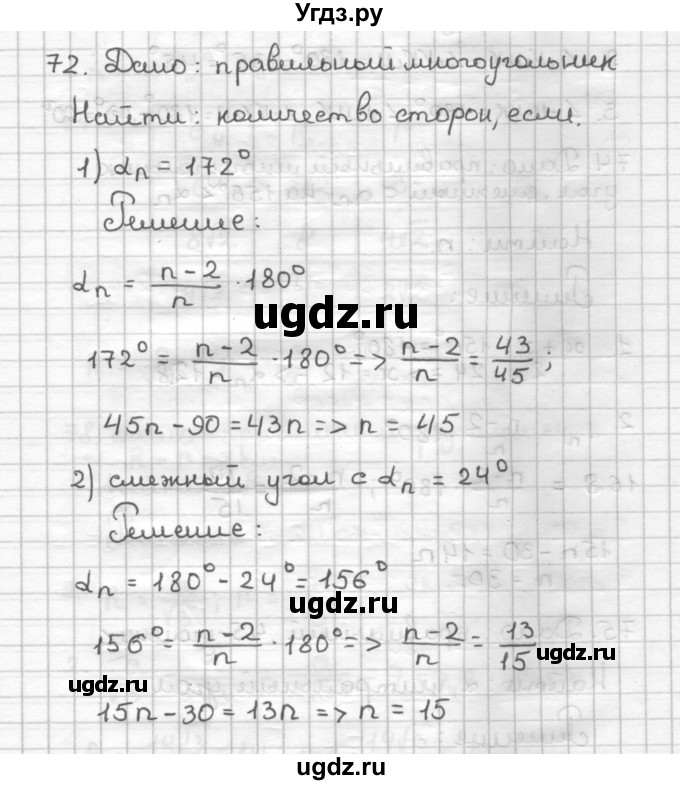 Угдз.ру
72. Дано: правильный многоугольник
Найти: количество сторон, если.
1) αn = 172°
Решение:
αn = (n-2)/n · 180°
ugdz.ru
172° = (n-2)/n · 180° => (n-2)/n = 43/45;
45n - 90 = 43n => n = 45
2) смежный угол с αn = 24°
Решение:
αn = 180° - 24° = 156°
ugdz.ru
156° = (n-2)/n · 180° => (n-2)/n = 13/15
ugdz.ru
ugdz.ru
15n - 30 = 13n => n = 15
ugdz.ru